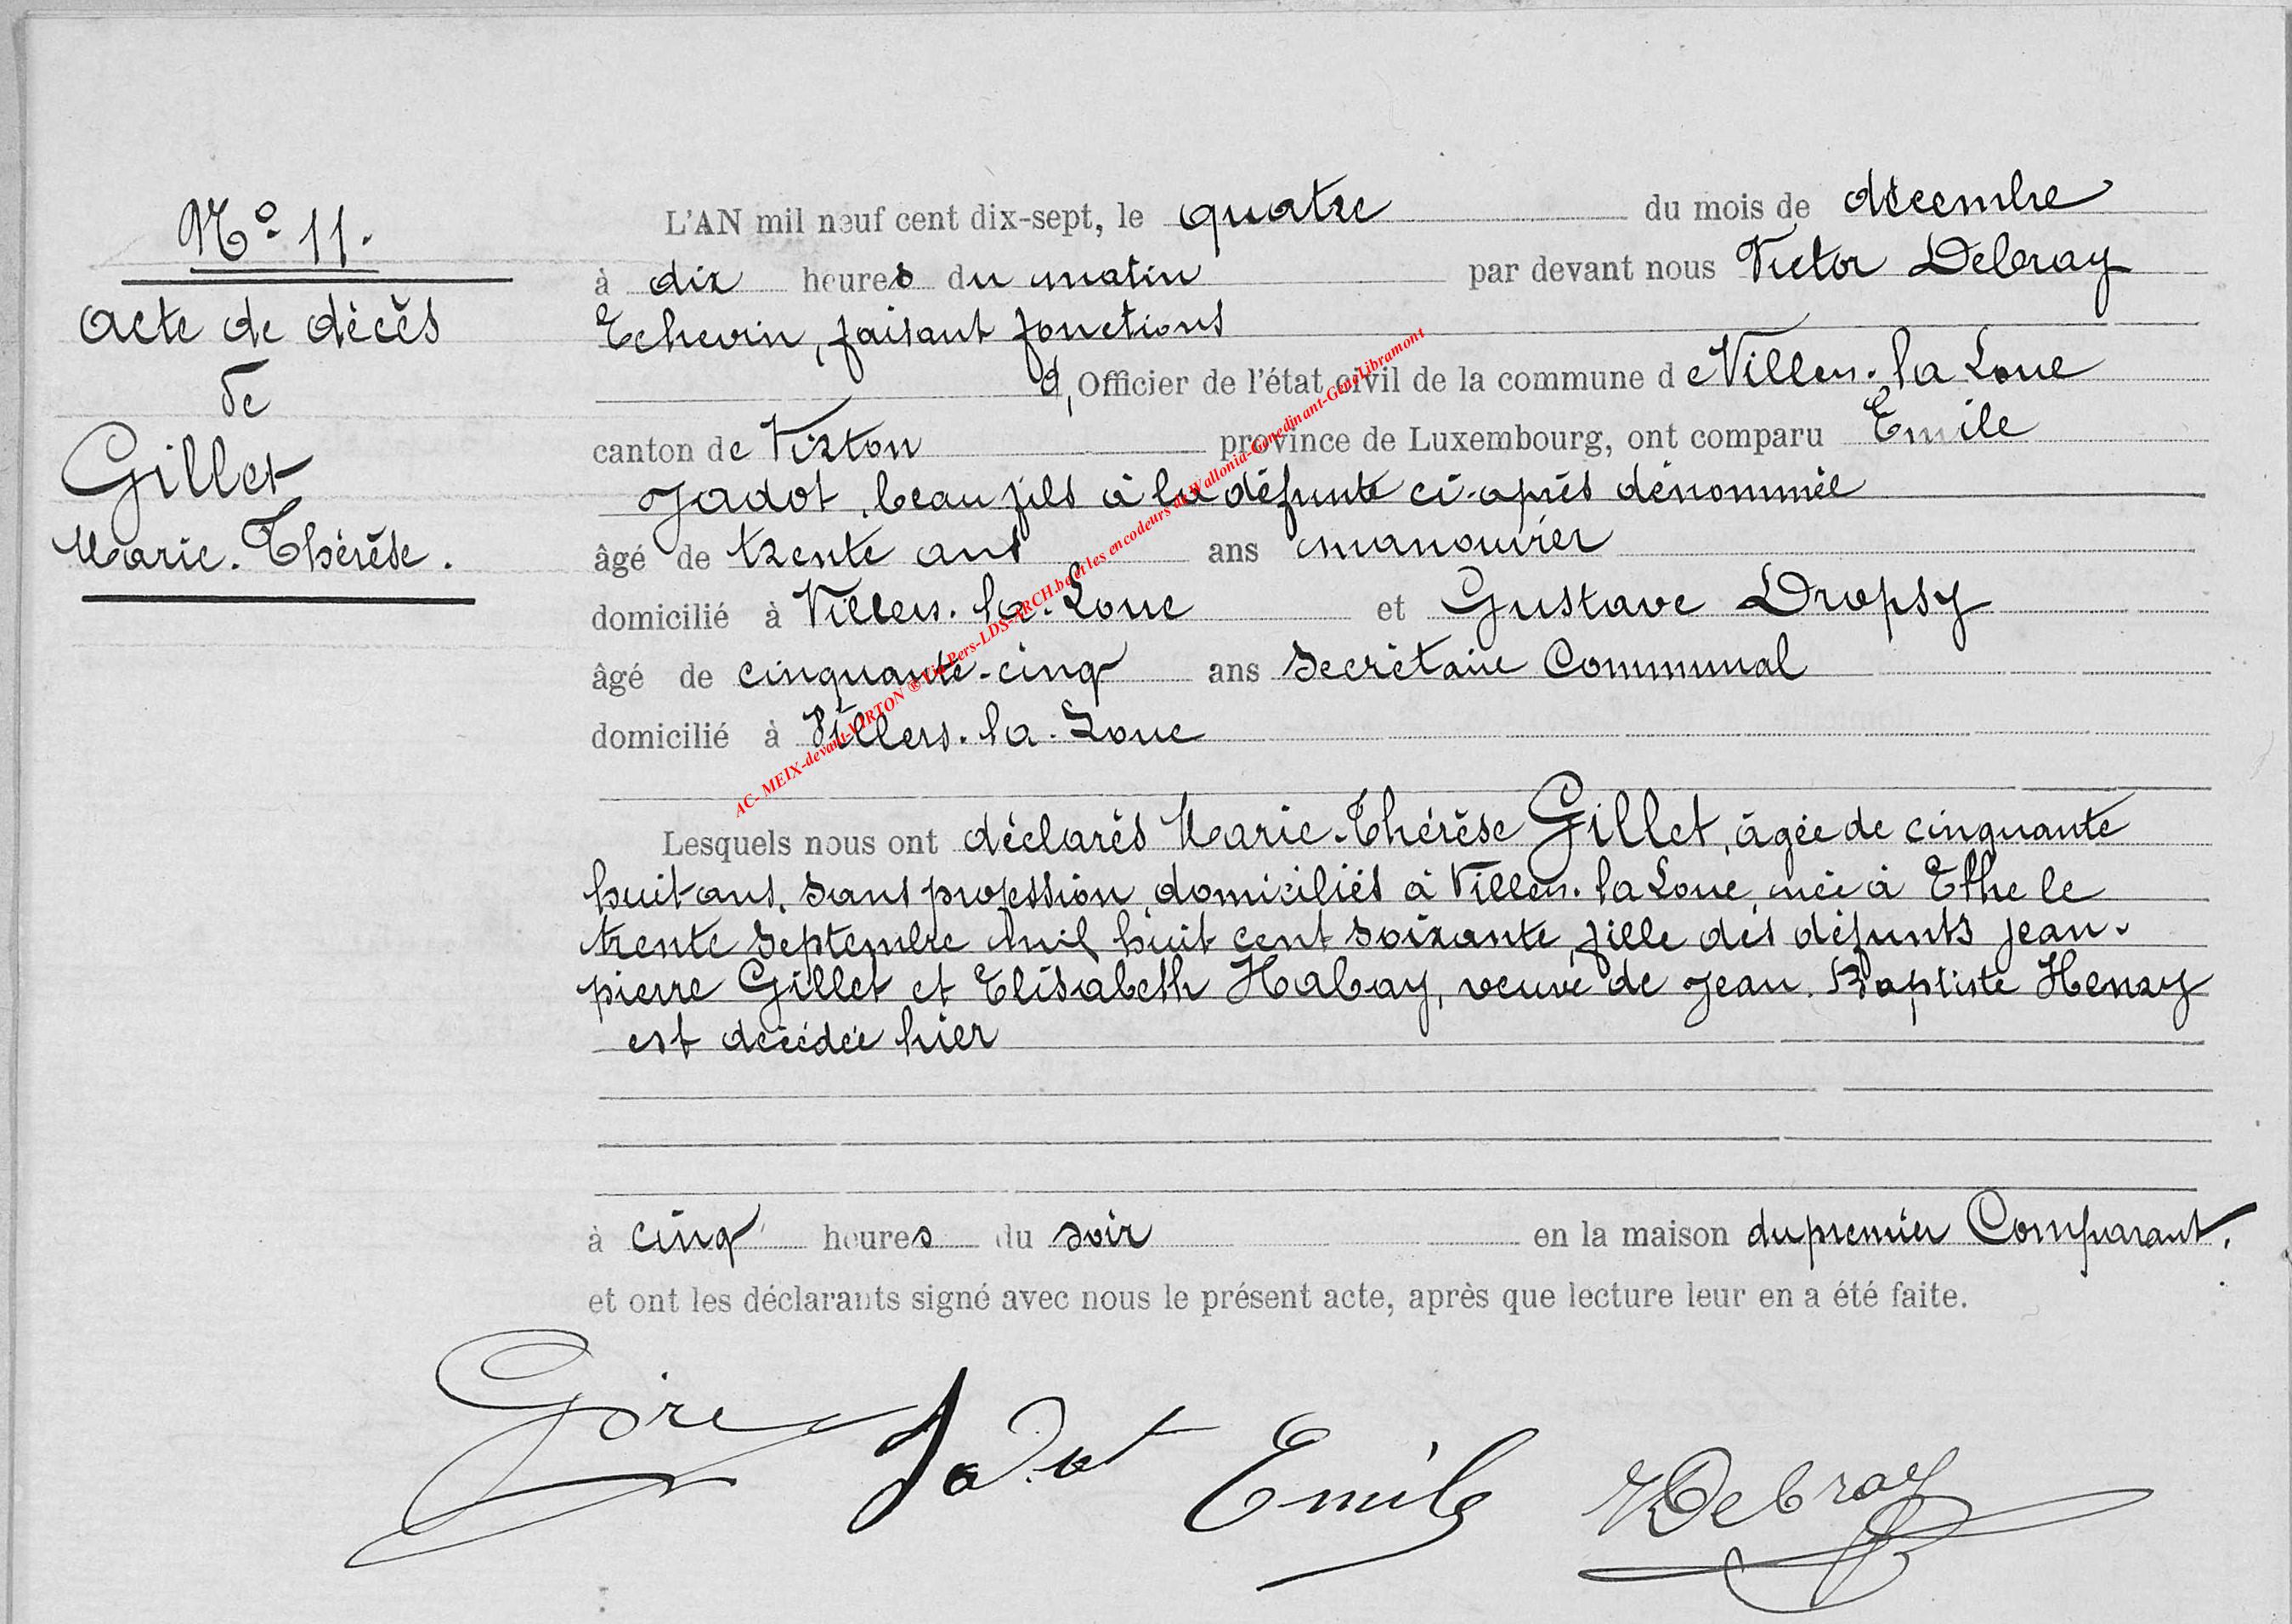 N° 11.
Acte de décès
de
Gillet
Marie-Thérèse.
L'AN mil neuf cent dix-sept, le quatre du mois de décembre
à dix heures du matin par devant nous Victor Debray
Echevin, faisant fonctions
d, Officier de l'état civil de la commune de Villers-la-Loue
canton de Virton province de Luxembourg, ont comparu Emile
Jadot, beau fils à la défunte ci-après dénommée
âgé de trente ans ans manouvrier
domicilié à Villers-la-Loue et Gustave Dropsy
âgé de cinquante-cinq ans Secrétaire Communal
domicilié à Villers-la-Loue
Lesquels nous ont déclarés Marie-Thérèse Gillet, âgée de cinquante
huit ans, sans profession, domiciliés à Villers-la Loue, née à Ethe le
trente septembre mil huit cent soixante, fille des défunts Jean-
pierre Gillet et Elisabeth Habay, veuve de Jean-Baptiste Henry
est décédée hier
à cinq heures du soir en la maison du premier Comparant.
et ont les déclarants signé avec nous le présent acte, après que lecture leur en a été faite.
Jadot Emile VDebray
AC- MEIX-devant-VIRTON ® Pers-LDS-ARCH.be et les encodeurs de Wallonia-Genedinant-GeneLibramont